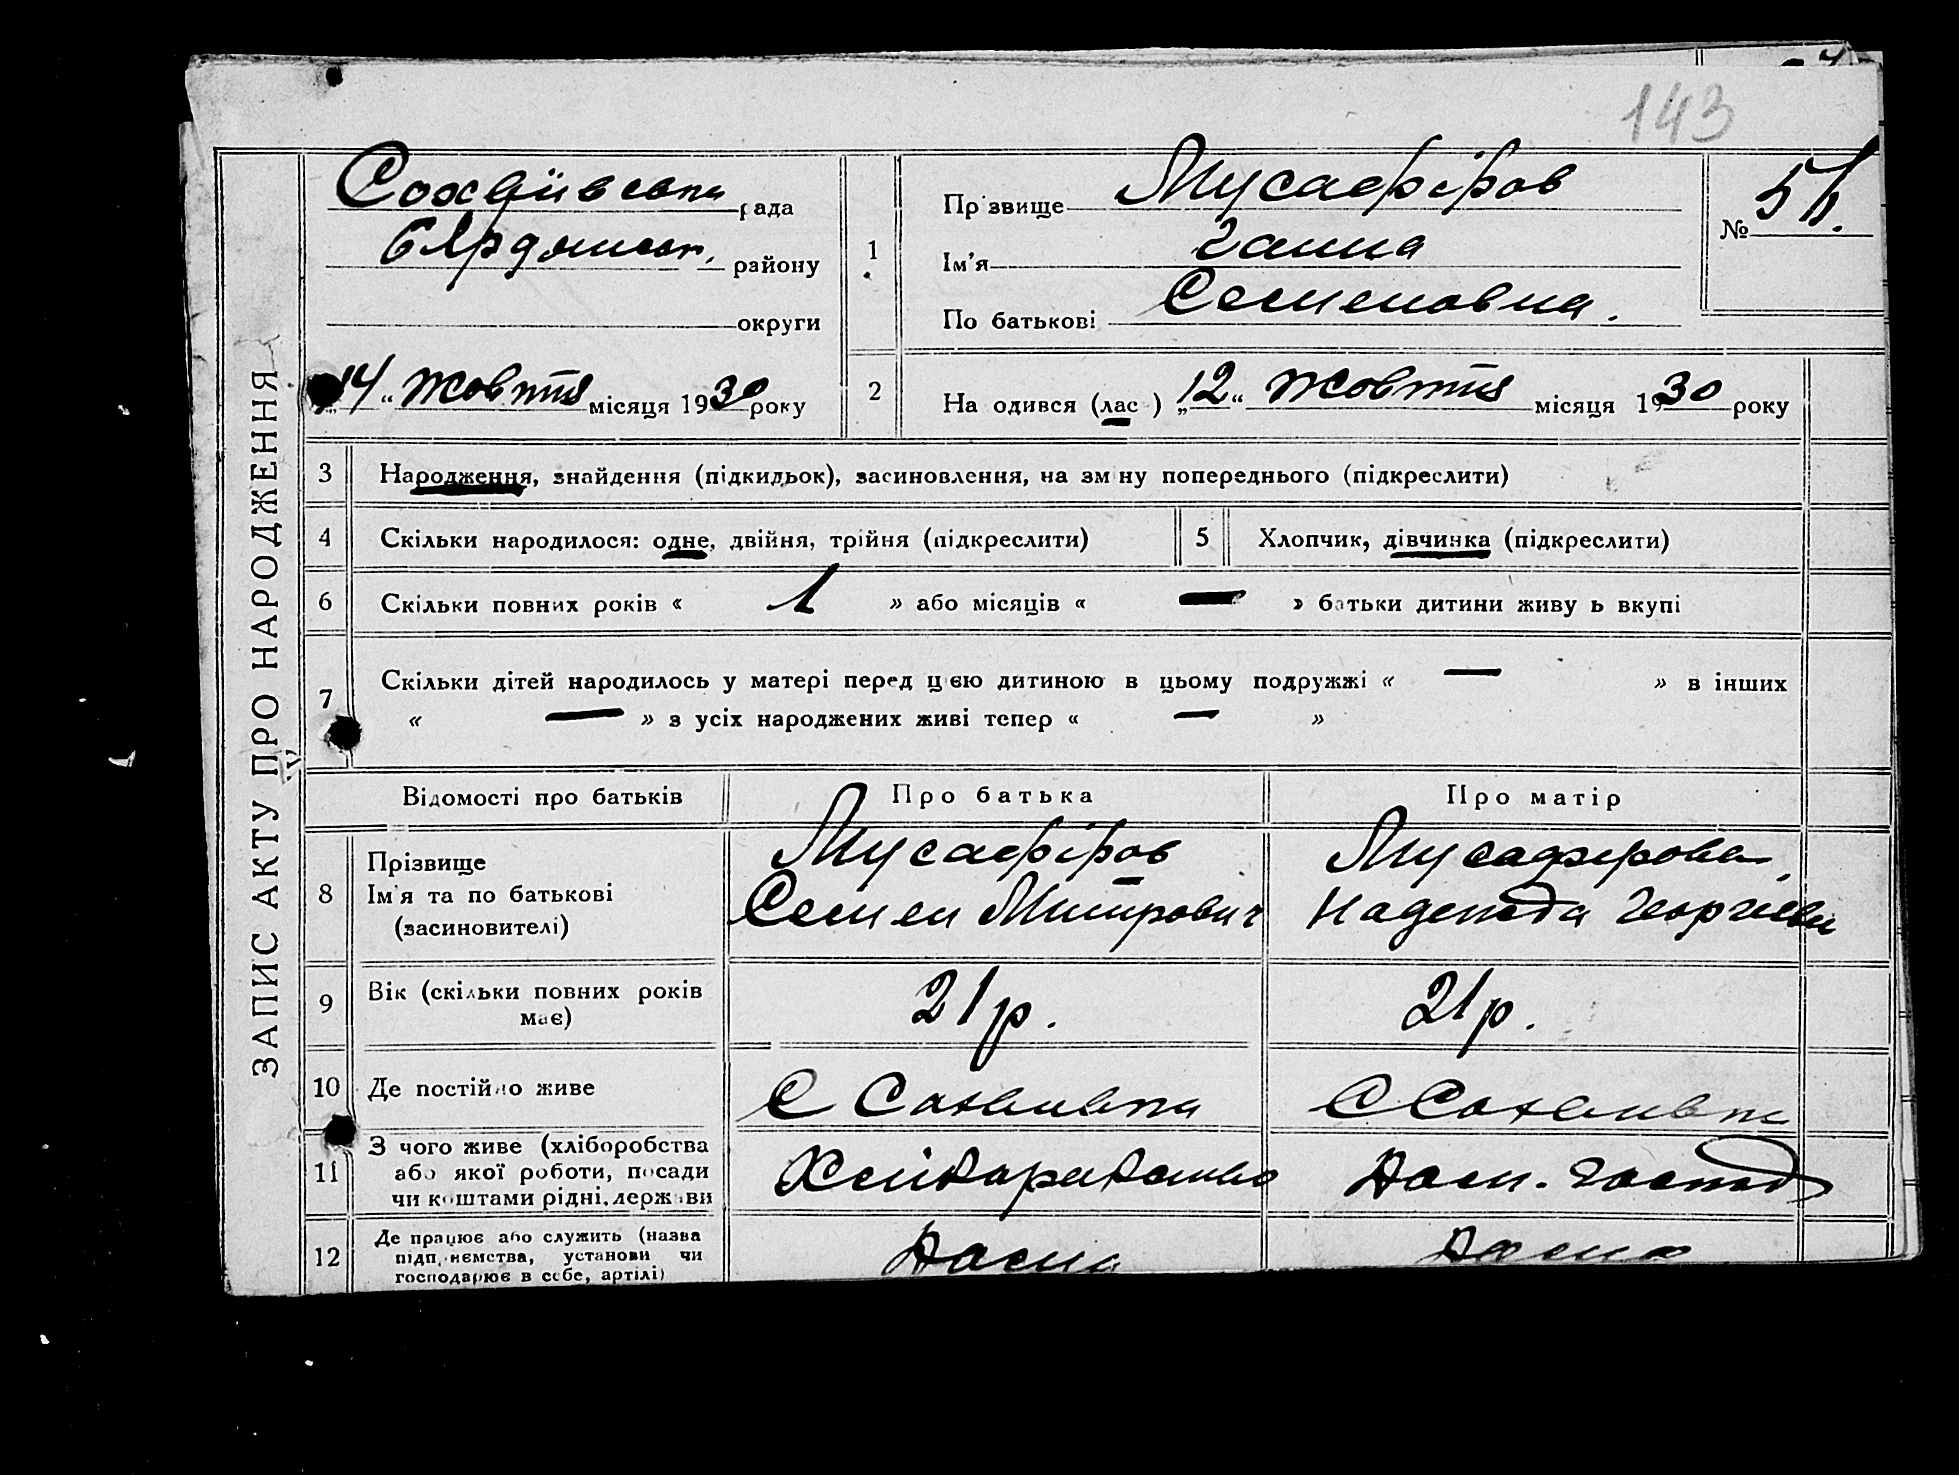 143
ЗАПИС АКТУ ПРО НАРОДЖЕННЯ
рада
району
округи
14 " жовтня місяця 1930 року
1
Прізвище Мусафіров
Ім'я Ганна
По батькові Семеновна.
№
2
На одився (лас ) „12 " жовтня місяця 1930 року
3 Народження, знайдення (підкидьок), засиновлення, на зм ну попереднього (підкреслити)
4 Скільки народилося: одне, двійня, трійня (підкреслити) 5 Хлопчик, дівчинка (підкреслити)
6 Скільки повних років « 1 » або місяців « — » батьки дитини живу ь вкупі
7 Скільки дітей народилось у матері перед цією дитиною в цьому подружжі « — » в інших
« — » з усіх народжених живі тепер « — »
Відомості про батьків Про батька Про матір
8 Прізвище
Ім'я та по батькові
(засновителі)
Мусафіров
Семен Митрович
Мусафірова
Надежда Георгіевн
9 Вік (скільки повних років
має)
21 р.
21 р.
10 Де постійно живе
11 З чого живе (хліборобства
або якої роботи, посади
чи коштами рідні, держави
Хліборобство
Дом. господ
12 Де працює або служить (назва
підприємства, установи чи
господарює в себе, артілі)